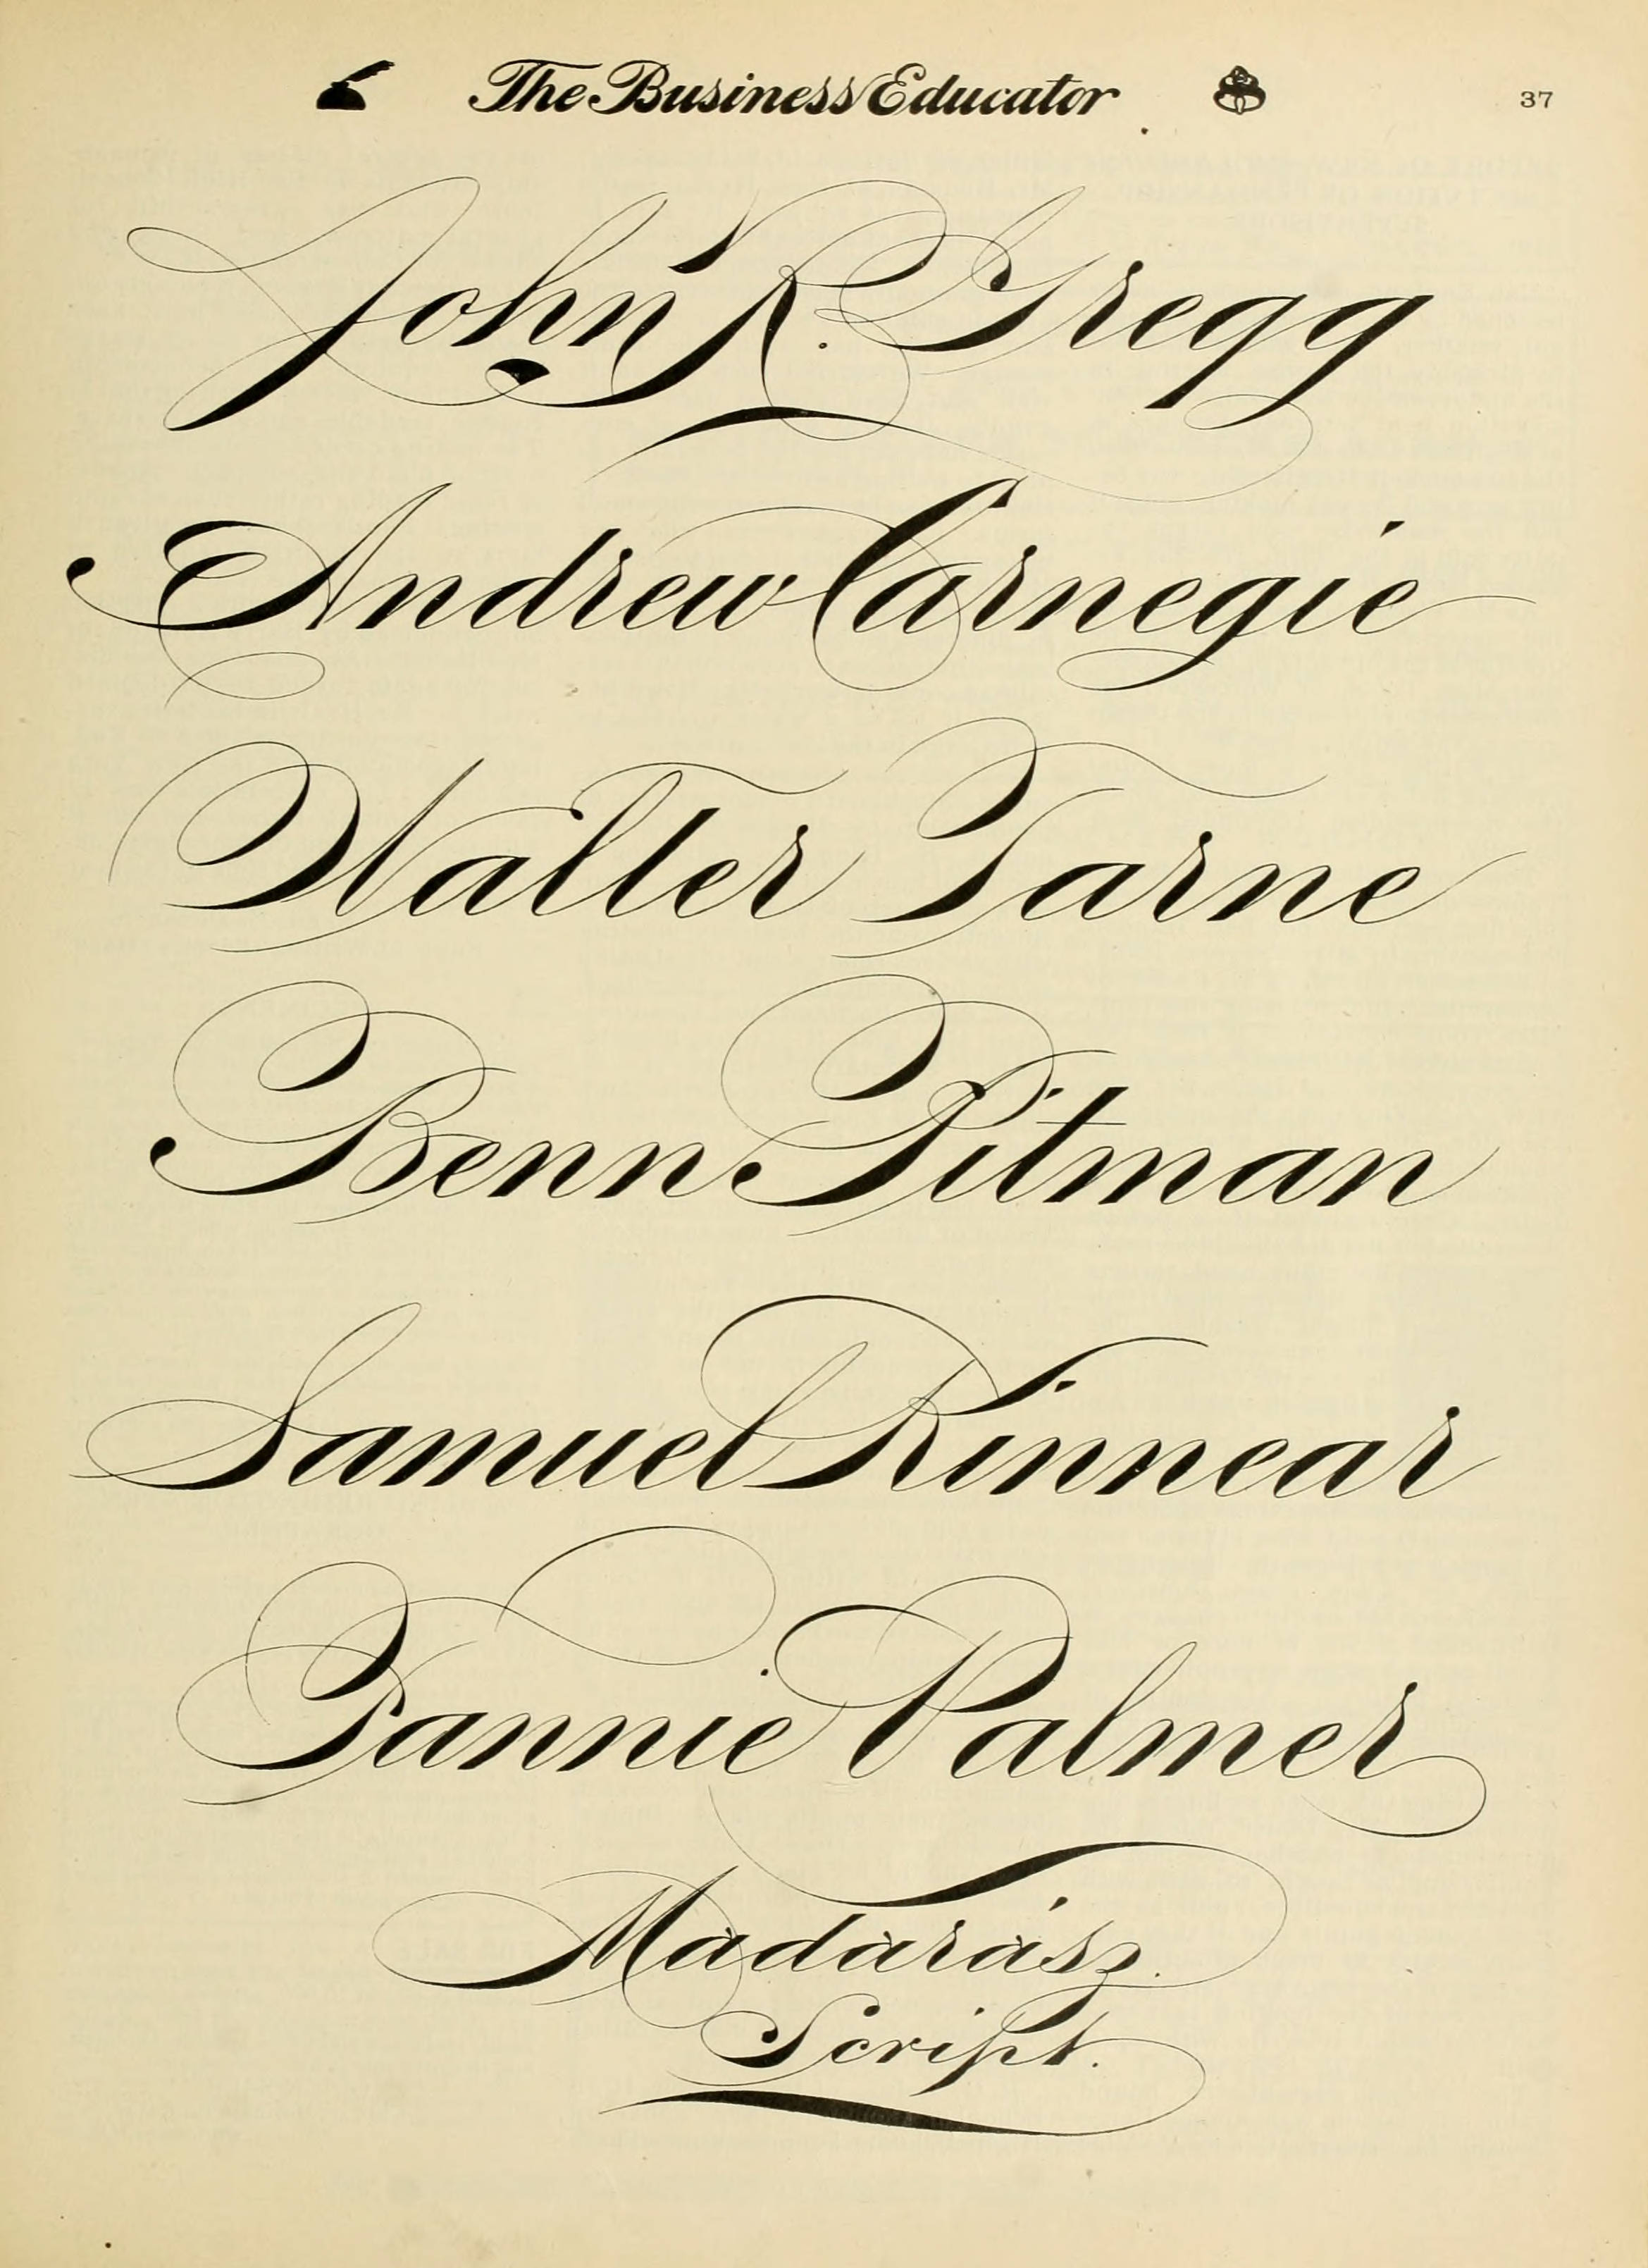 The Business Educator 37
John R. Gregg
Andrew Carnegie
Walter Tarne
Benn Pitman
Samuel Kinnear
Fannie Palmer
Madarász.
Script.